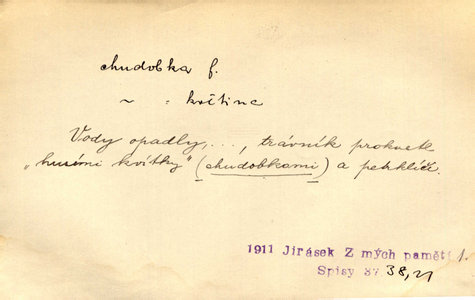 chudobka f.
~ : květina
Vody opadly,..., trávník prokvetl
„husími kvítky" (chudobkami) a petrklíči.
1911 Jirásek Z mých pamětí 1.
Spisy 37 38,21